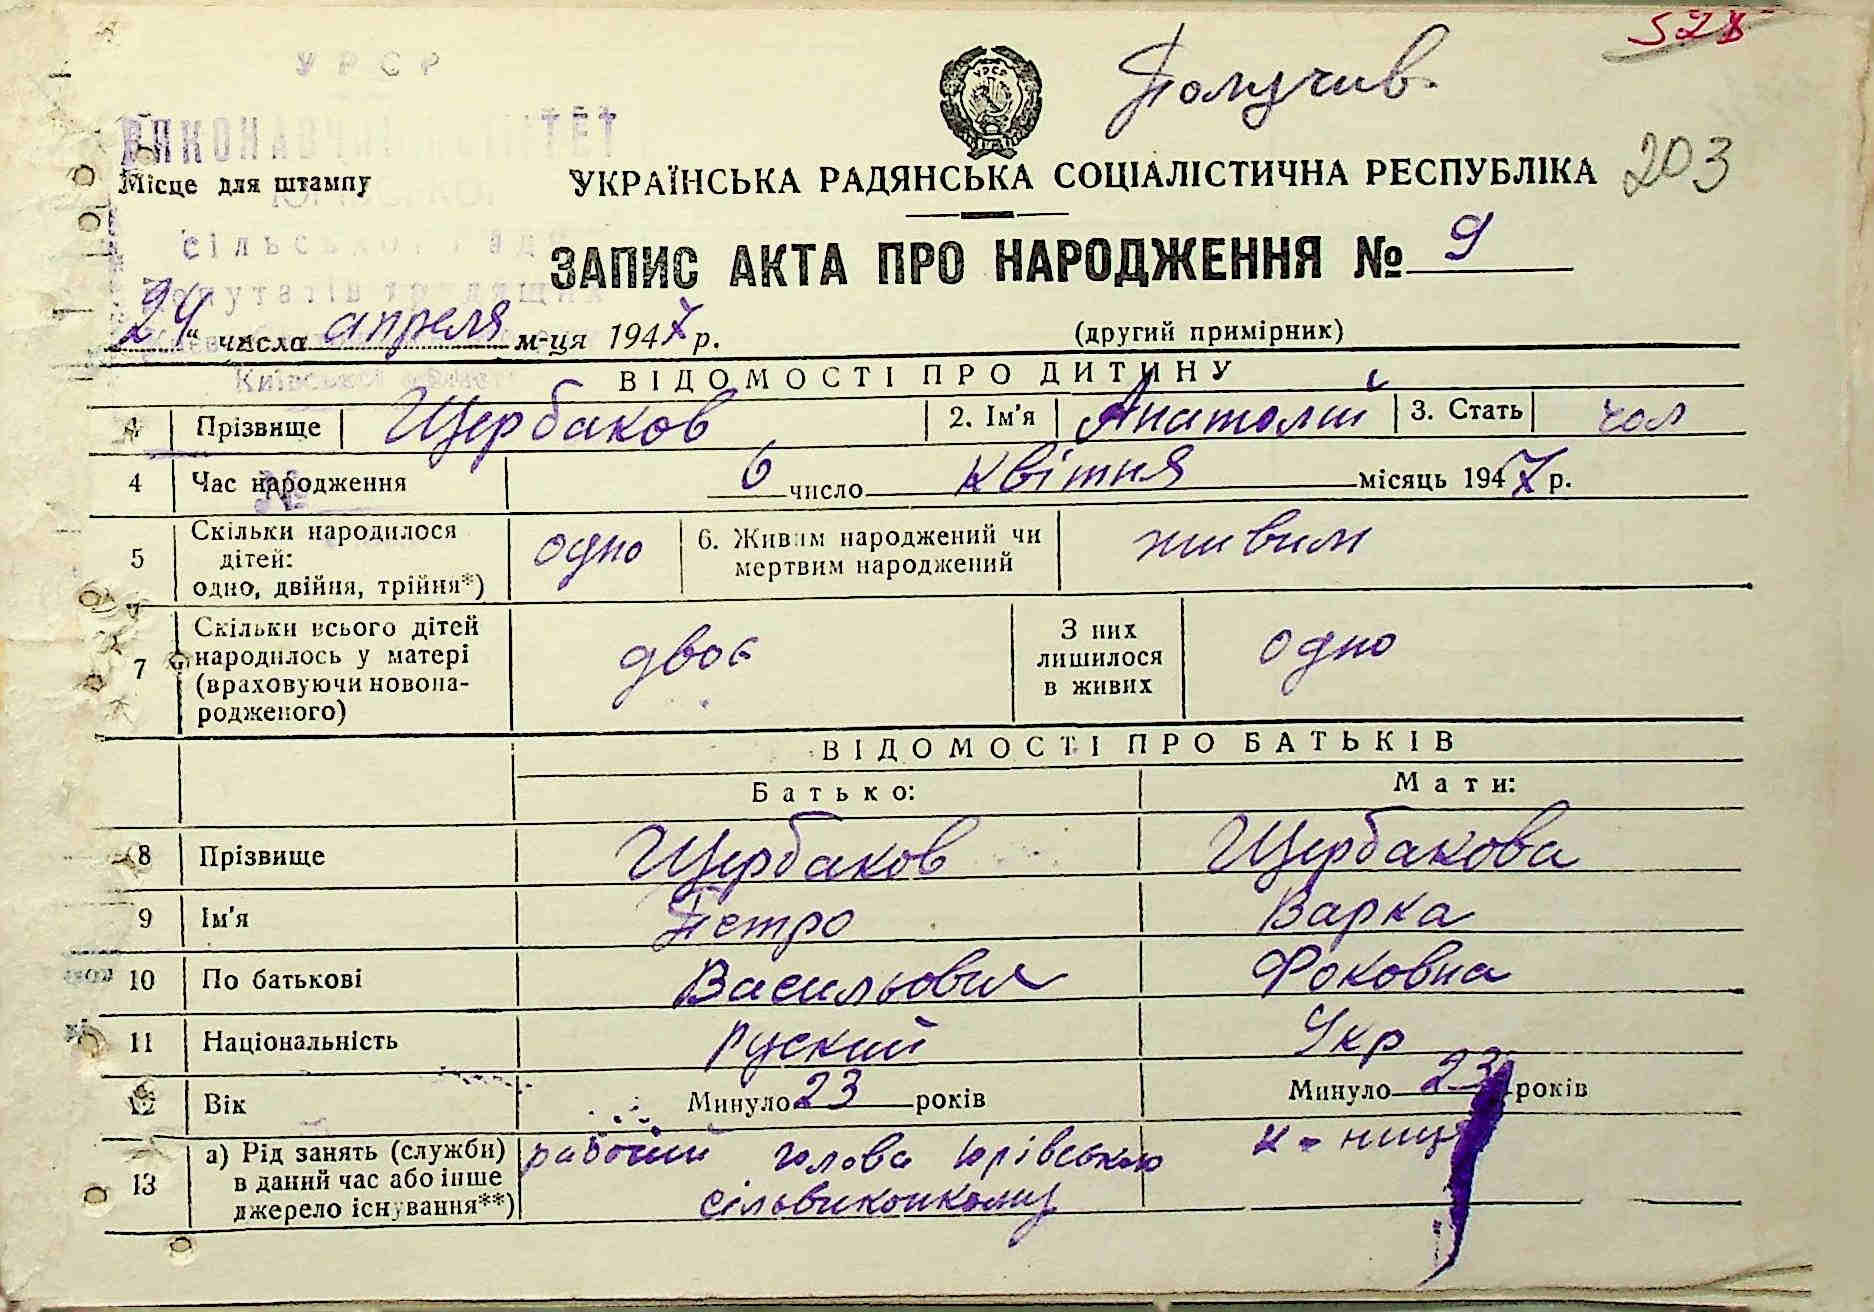 528
УРСР
Получив.
ВИКОНАВЧИЙ КОМІТЕТ
Місце для штампу
УКРАЇНСЬКА РАДЯНСЬКА СОЦІАЛІСТИЧНА РЕСПУБЛІКА 203
сільської ради
ЗАПИС АКТА ПРО НАРОДЖЕННЯ № 9
депутатів трудящих
24 “ числа апреля м-ця 1947 р. (другий примірник)
Київської області
ВІДОМОСТІ ПРО ДИТИНУ
1 Прізвище Щербаков 2. Ім'я Анатолий 3. Стать чол
4 Час народження 6 число квітня місяць 1947 р.
5 Скільки народилося дітей: одно, двійня, трійня*) одно 6. Живим народжений чи мертвим народжений живим
7 Скільки всього дітей народилось у матері (враховуючи новонародженого) двоє З них лишилося в живих одно
ВІДОМОСТІ ПРО БАТЬКІВ
Батько: Мати:
8 Прізвище Щербаков Щербакова
9 Ім'я Петро Варка
10 По батькові Васильович Фоковна
11 Національність руский Укр
12 Вік Минуло 23 років Минуло 23 років
13 а) Рід занять (служби) в даний час або інше джерело існування**) рабочий голова Юрівського сільвиконкому к-ниця